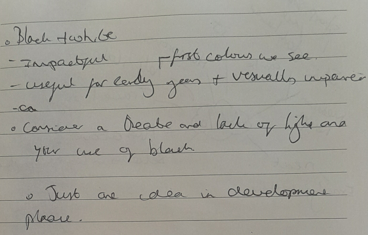 • Black + white
- Impactful first colours we see
- useful for early years + visually
• Consider a and lack of light and
your use of black
• Just one idea in development
phase.